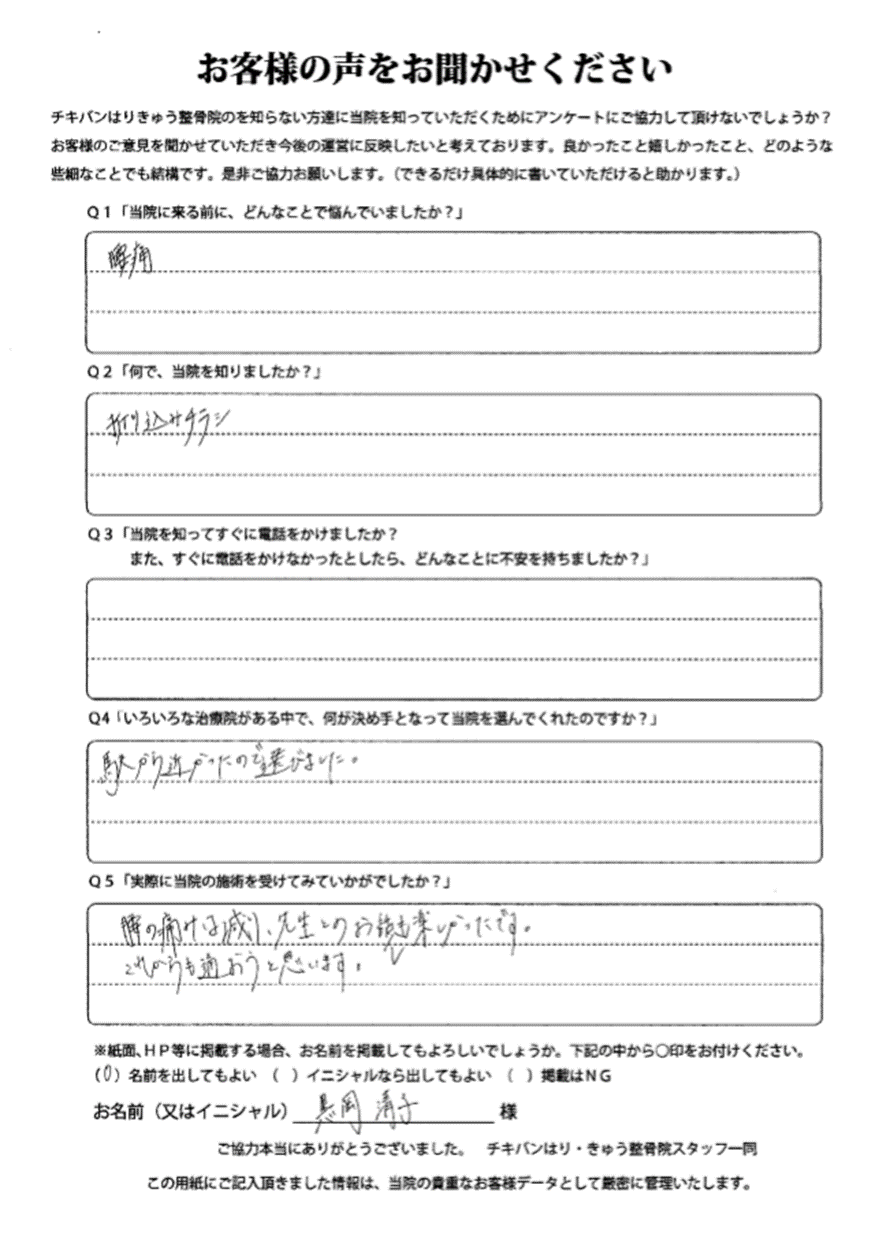 お客様の声をお聞かせください
チキバンはりきゅう整骨院のを知らない方達に当院を知っていただくためにアンケートにご協力して頂けないでしょうか？
お客様のご意見を聞かせていただき今後の運営に反映したいと考えております。良かったこと嬉しかったこと、どのような
些細なことでも結構です。是非ご協力お願いします。（できるだけ具体的に書いていただけると助かります。）
Q１「当院に来る前に、どんなことで悩んでいましたか？」
腰痛
Q２「何で、当院を知りましたか？」
折り込みチラシ
Q３「当院を知ってすぐに電話をかけましたか？
また、すぐに電話をかけなかったとしたら、どんなことに不安を持ちましたか？」
Q4「いろいろな治療院がある中で、何が決め手となって当院を選んでくれたのですか？」
駅から近かったので選びました。
Q５「実際に当院の施術を受けてみていかがでしたか？」
腰の痛みは減り、先生とのお話も楽しかったです。
これからも通おうと思います。
※紙面、HP等に掲載する場合、お名前を掲載してもよろしいでしょうか。下記の中から〇印をお付けください。
（〇）名前を出してもよい （ ）イニシャルなら出してもよい （ ）掲載はＮＧ
お名前（又はイニシャル） 岡 清子 様
ご協力本当にありがとうございました。 チキバンはり・きゅう整骨院スタッフ一同
この用紙にご記入頂きました情報は、当院の貴重なお客様データとして厳密に管理いたします。